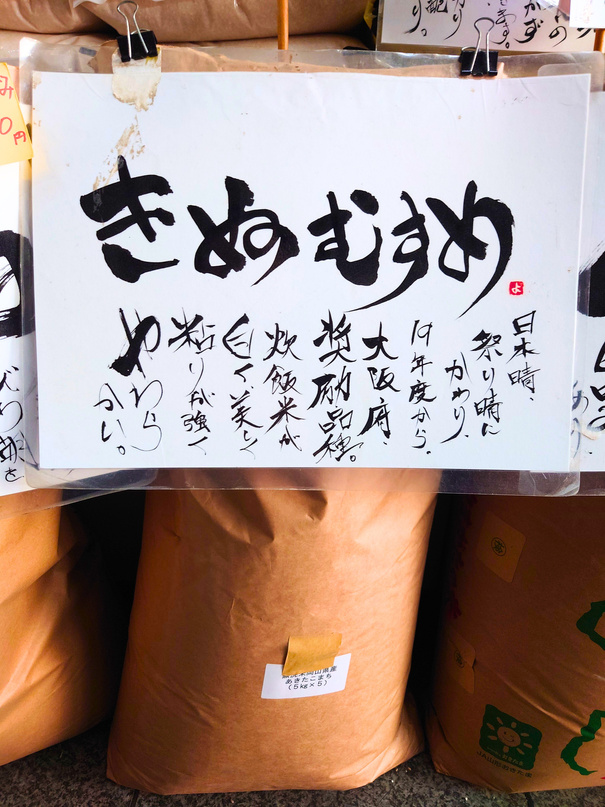 きぬむすめ
日本晴、
祭り晴に
かわり、
19年度から、
大阪府、
奨励品種。
炊飯米が
白く美しく
粘りが強く
やわら
かい。
よ
円
あきたこまち
（5kg×5）